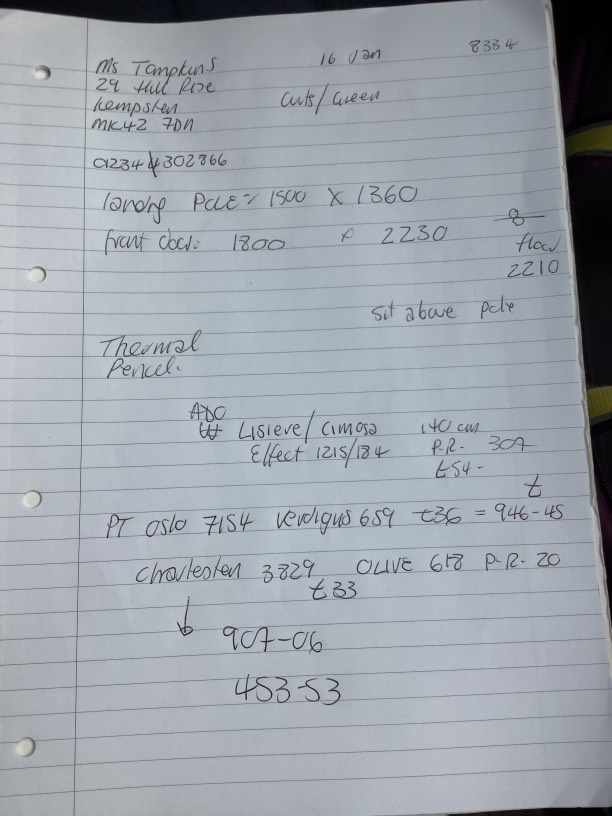 Ms Tampkins 16 Jan 8334
29 Hill Rise
Kempsten Cuts/Green
MK42 7DN
01234 302866
landing Pole 1500 X 1360
front door: 1800 x 2230 8
floor
2210
sit above pole
Thermal
Pencel.
ADO
Lisieve/Cimosa 140 cms
Effect 1215/184 P.R. 307
£54-
£
PT Oslo 7154 Verdigus 659 £36 = 946-45
Charlesten 3829 OLIVE 618 P.R. 20
£33
↓
907-06
453-53